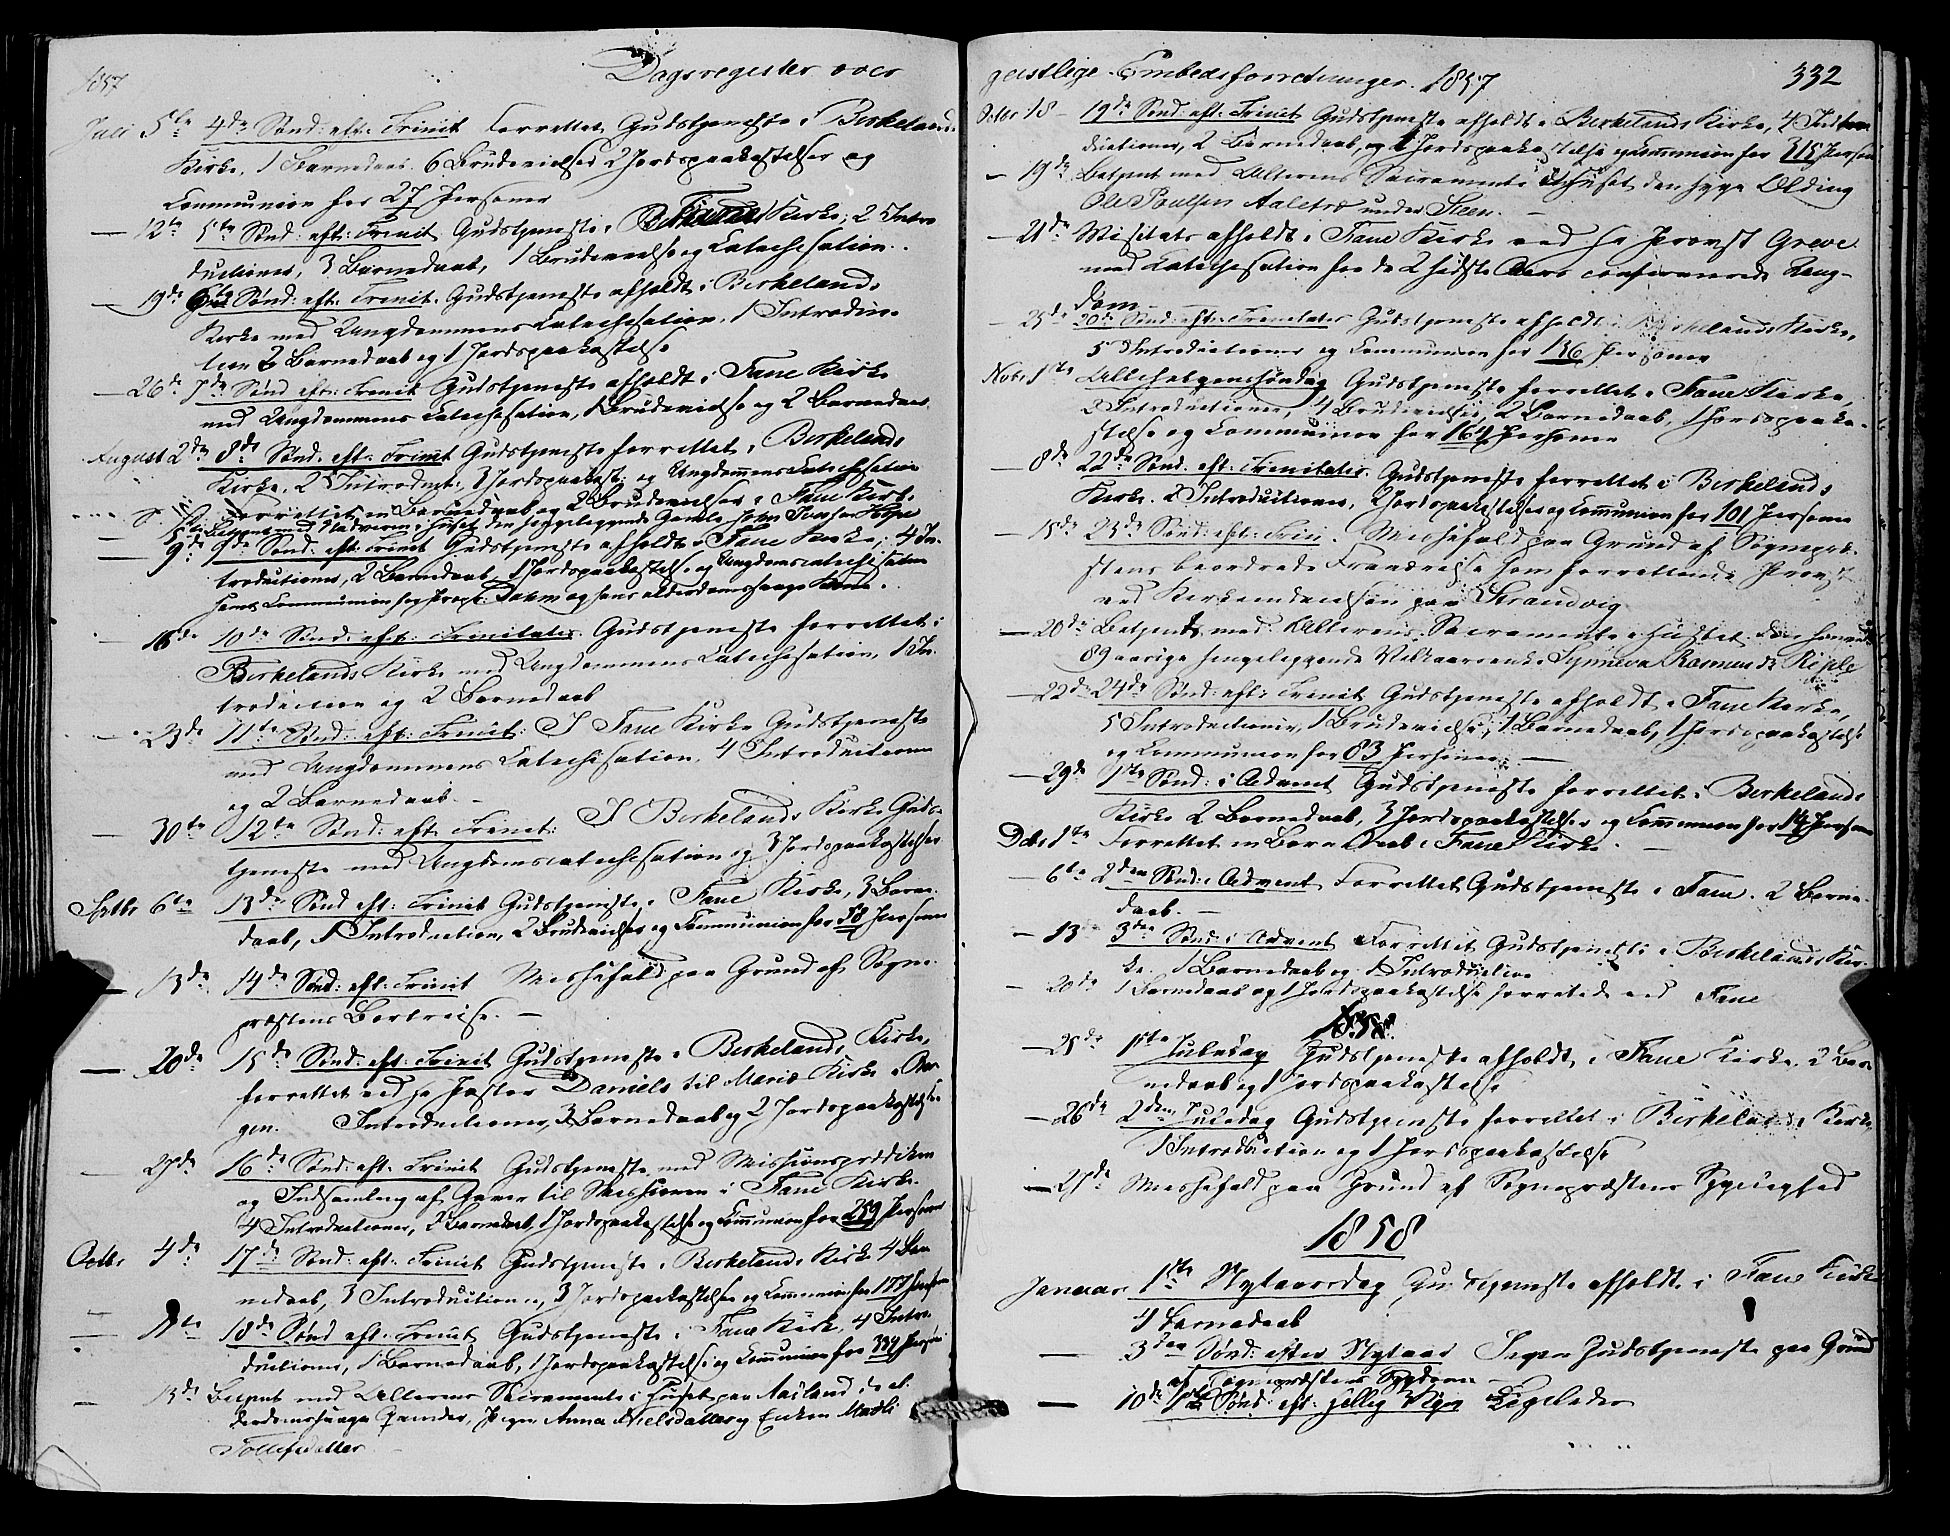 1857 Dagsregister over
Juli 5te 4de Sønd: eft: Trinit Forrettet Gudstjeneste i Birkelands
Kirke, 1 Barnedaab 6 Brudevielser 2 Jordspaakastelser og
Communion for 27 Personer
— 12te 5te Sønd: eft: Trinit Gudstjeneste i Fane Kirke; 2 Intro-
ductioner, 3 Barnedaab, 1 Brudevielse og Catechisation.
— 19de 6te Sønd: eft: Trinit. Gudstjeneste afholdt i Birkelands
Kirke med Ungdommens Catechisation, 1 Introduc-
tion 2 Barnedaab og 1 Jordspaakastelse
— 26de 7de Sønd eft: Trinit Gudstjeneste afholdt i Fane Kirke
med Ungdommens Catechisation, 1 Brudevielse og 2 Barnedaab.
August 2den 8de Sønd. eft. Trinit Gudstjeneste forrettet i Birkelands
Kirke. 2 Introduct:, 3 Jordspaakast: og Ungdommens Catechisation
Forrettet en Barnedaab og 2 Brudevielser i Fane Kirke
Betjent med Nadveren i Huset den sengeliggende Gamle
— 9de 9de Sønd: eft: Trinit Gudstjeneste afholdt i Fane Kirke; 4 In-
troductioner, 2 Barnedaab, 1 Jordspaakastelse og Ungdomscatechisation
samt Communion for Propr: Dahm og hans alderdomssvage Kone.
— 16de 10de Sønd: eft: Trinitatis Gudstjeneste forrettet i
Birkelands Kirke med Ungdommens Catechisation, 1 In-
troduction og 2 Barnedaab
— 23de 11te Sønd: eft: Trinit: I Fane Kirke Gudstjeneste
med Ungdommens Catechisation, 4 Introductioner
og 2 Barnedaab. —
— 30te 12te Sønd: eft Trinit: I Birkelands Kirke Guds-
tjeneste med Ungdomscatechisation og 3 Jordspaakastelser
Septbr 6te 13de Sønd eft: Trinit Gudstjeneste i Fane Kirke, 3 Barne-
daab, 1 Introduction, 2 Brudevielser og Communion for 58 Personer
— 13de 14de Sønd: eft: Trinit Messefald paa Grund af Sogne-
præstens Bortreise. —
— 20de 15de Sønd: eft: Trinit Gudstjeneste i Birkelands Kirke,
forrettet ved Hr Pastor Daniels til Mariæ Kirke i Ber-
gen. Introductioner, 3 Barnedaab og 2 Jordspaakastelser
— 27de 16de Sønd: eft: Trinit Gudstjeneste med Missionsprædiken
og Indsamling af Gaver til Missionen i Fane Kirke.
4 Introductioner, 2 Barnedaab, 1 Jordspaakastelse og Communion for 259 Personer
Octbr 4de 17de Sønd: eft: Trinit Gudstjeneste i Birkelands Kirke 4 Bar-
nedaab, 3 Introductioner, 3 Jordspaakastelser og Communion for 177 Personer
— 11te 18de Sønd eft: Trinit Gudstjeneste i Fane Kirke. 4 Intro-
ductioner, 1 Barnedaab, 1 Jordspaakastelse og Communion for 334 Personer
— 13de Betjent med Alterens Sacramente i Huset paa Aasland de al-
derdomssvage Qvinder, Pigen Anna Nielsdatter og Enken Madli
Tollefsdatter —
geistlige Embedsforretninger. 1857 332
Octbr 18 — 19de Sønd: eft: Trinit Gudstjeneste afholdt i Birkelands Kirke, 4 Intro-
ductioner, 2 Barnedaab, og 1 Jordspaakastelse og Communion for 115 Personer
— 19de Betjent med Alterens Sacramente i Huset den syge Olding
Ole Poulsen Aaletræ under Steen. —
— 21de Visitats afholdt i Fane Kirke ved Hr Provst Greve
med Catechisation for de 2 sidste Aars confirmerede Ung-
dom —
— 25de 20de Sønd: eft: Trinitatis Gudstjeneste afholdt i Birkelands Kirke,
5 Introductioner og Communion for 136 Personer
Novbr 1ste Allehelgenssøndag Gudstjeneste forrettet i Fane Kirke,
3 Introductioner, 4 Brudevielser, 2 Barnedaab, 1 Jordspaaka-
stelse og Communion for 164 Personer
— 8de 22de Sønd. eft: Trinitatis. Gudstjeneste forrettet i Birkelands
Kirke. 2 Introductioner, 2 Jordspaakastelser og Communion for 101 Personer
— 15de 23de Sønd: eft: Trin. Messefald paa Grund af Sognepræ-
stens beordrede Fraværelse som forrettende Provst
ved Kirkeindvielsen paa Strandvig
— 20de Betjent med Alterens Sacramente i Huset den henved
89 aarige sengeliggende Vilkaarsenke Synneva Rasmusdr Riple
— 22de 24de Sønd: eft: Trinit Gudstjeneste afholdt i Fane Kirke,
5 Introductioner, 1 Brudevielse, 1 Barnedaab, 1 Jordspaakastelse
og Communion for 83 Personer. —
— 29de 1ste Sønd: i Advent Gudstjeneste forrettet i Birkelands
Kirke 2 Barnedaab, 3 Jordspaakastelser og Communion for 14 Personer
Decbr 1ste Forrettet en Barnedaab i Fane Kirke. —
— 6te 2den Sønd: i Advent Forrettet Gudstjeneste i Fane. 2 Barne-
daab. —
— 13 3die Sønd: i Advent Forrettet Gudstjeneste i Birkelands Kir-
ke. 1 Barnedaab og 1 Introduction
— 20de 1 Barnedaab og 1 Jordspaakastelse forrettede ved Fane
1858
— 25de 1ste Juledag Gudstjeneste afholdt i Fane Kirke. 2 Bar-
nedaab og 1 Jordspaakastelse
— 26de 2den Juledag Gudstjeneste forrettet i Birkelands Kirke
1 Introduction og 1 Jordspaakastelse
— 27de Messefald paa Grund af Sognepræstens Sygelighed
1858
Januar 1ste Nytaarsdag Gudstjeneste afholdt i Fane Kirke
4 Barnedaab
— 3die Sønd: efter Nytaar Ingen Gudstjeneste paa Grund
af Sognepræstens Sygdom —
— 10de 1ste Sønd: eft: hellig 3 Kgr Ligeledes